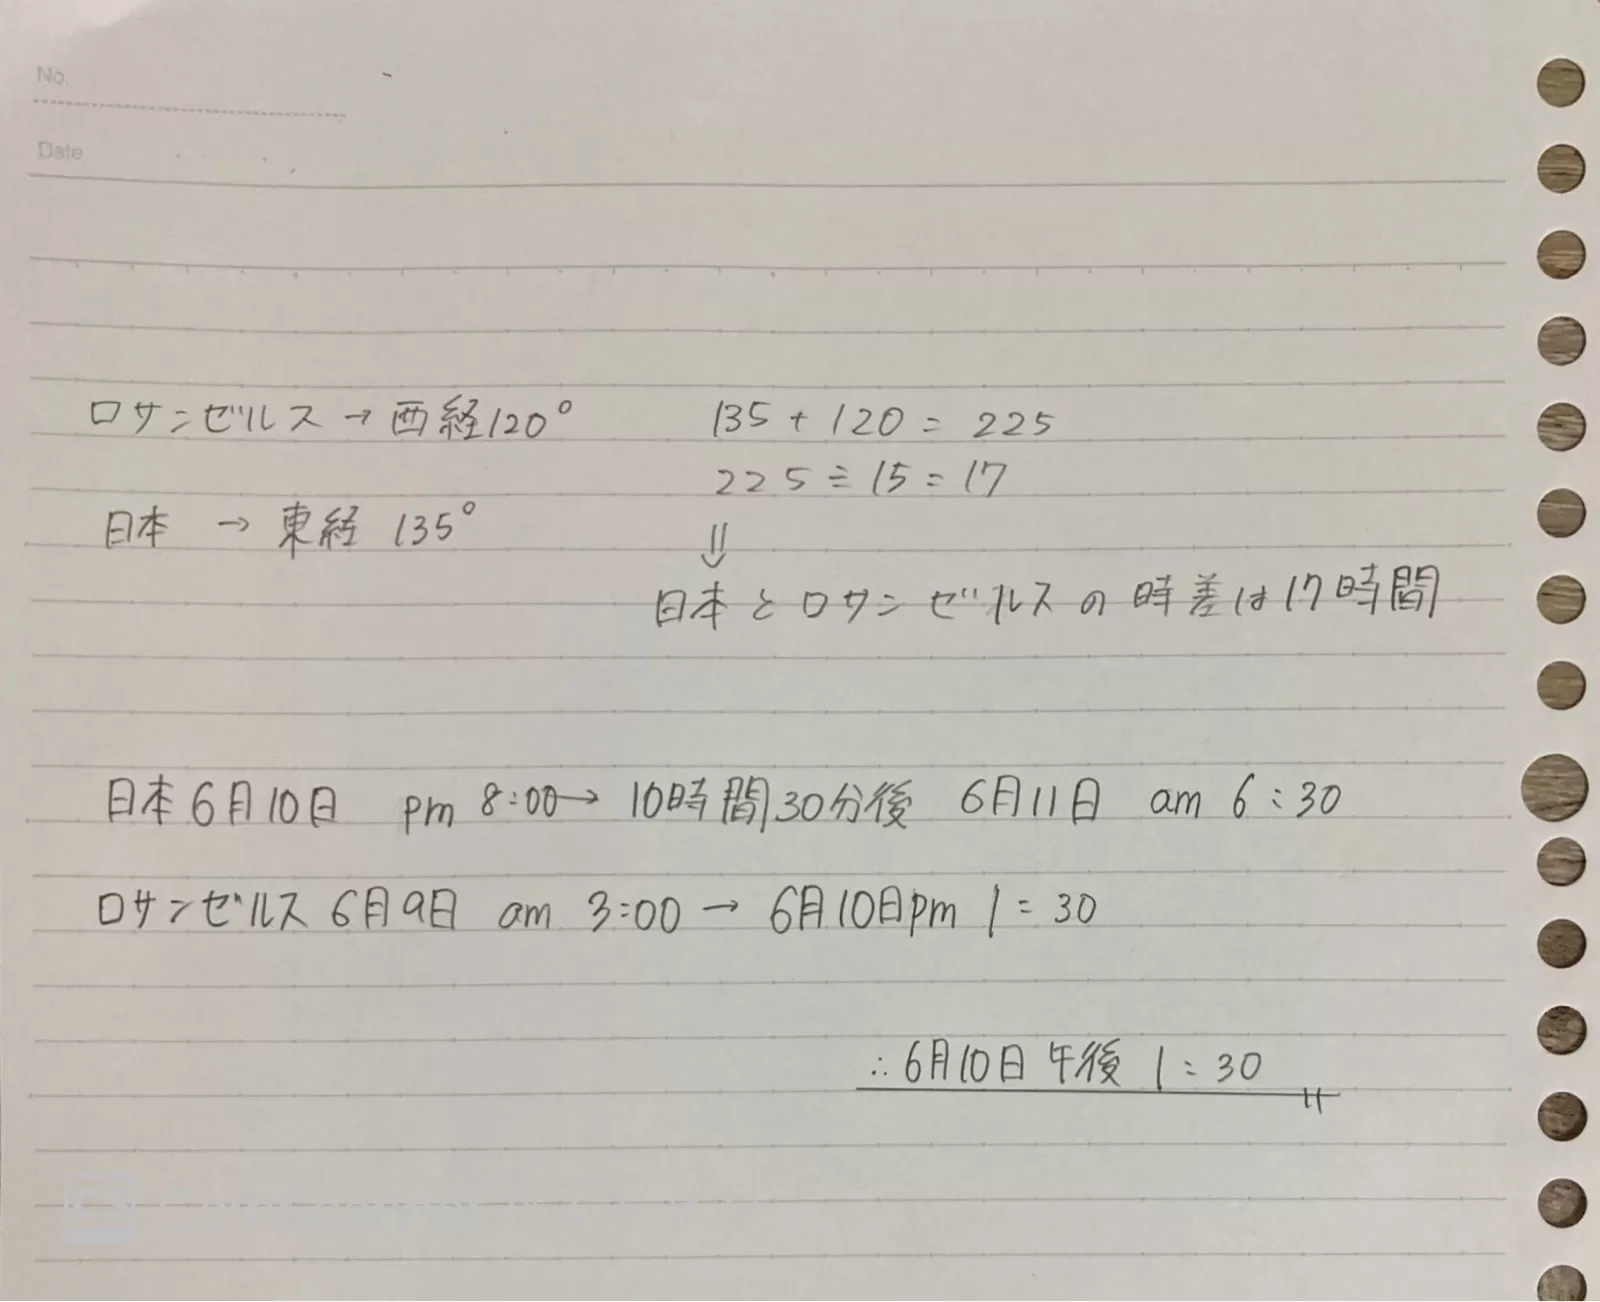 No.
Date
ロサンゼルス → 西経120°
135 + 120 = 225
225 ÷ 15 = 17
日本 → 東経 135°
⇓
日本とロサンゼルスの時差は17時間
日本6月10日 pm 8:00→ 10時間30分後 6月11日 am 6:30
ロサンゼルス 6月9日 am 3:00 → 6月10日pm 1:30
∴ 6月10日 午後 1:30